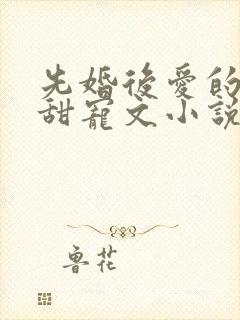 先婚後愛的
甜寵文小說
魯花